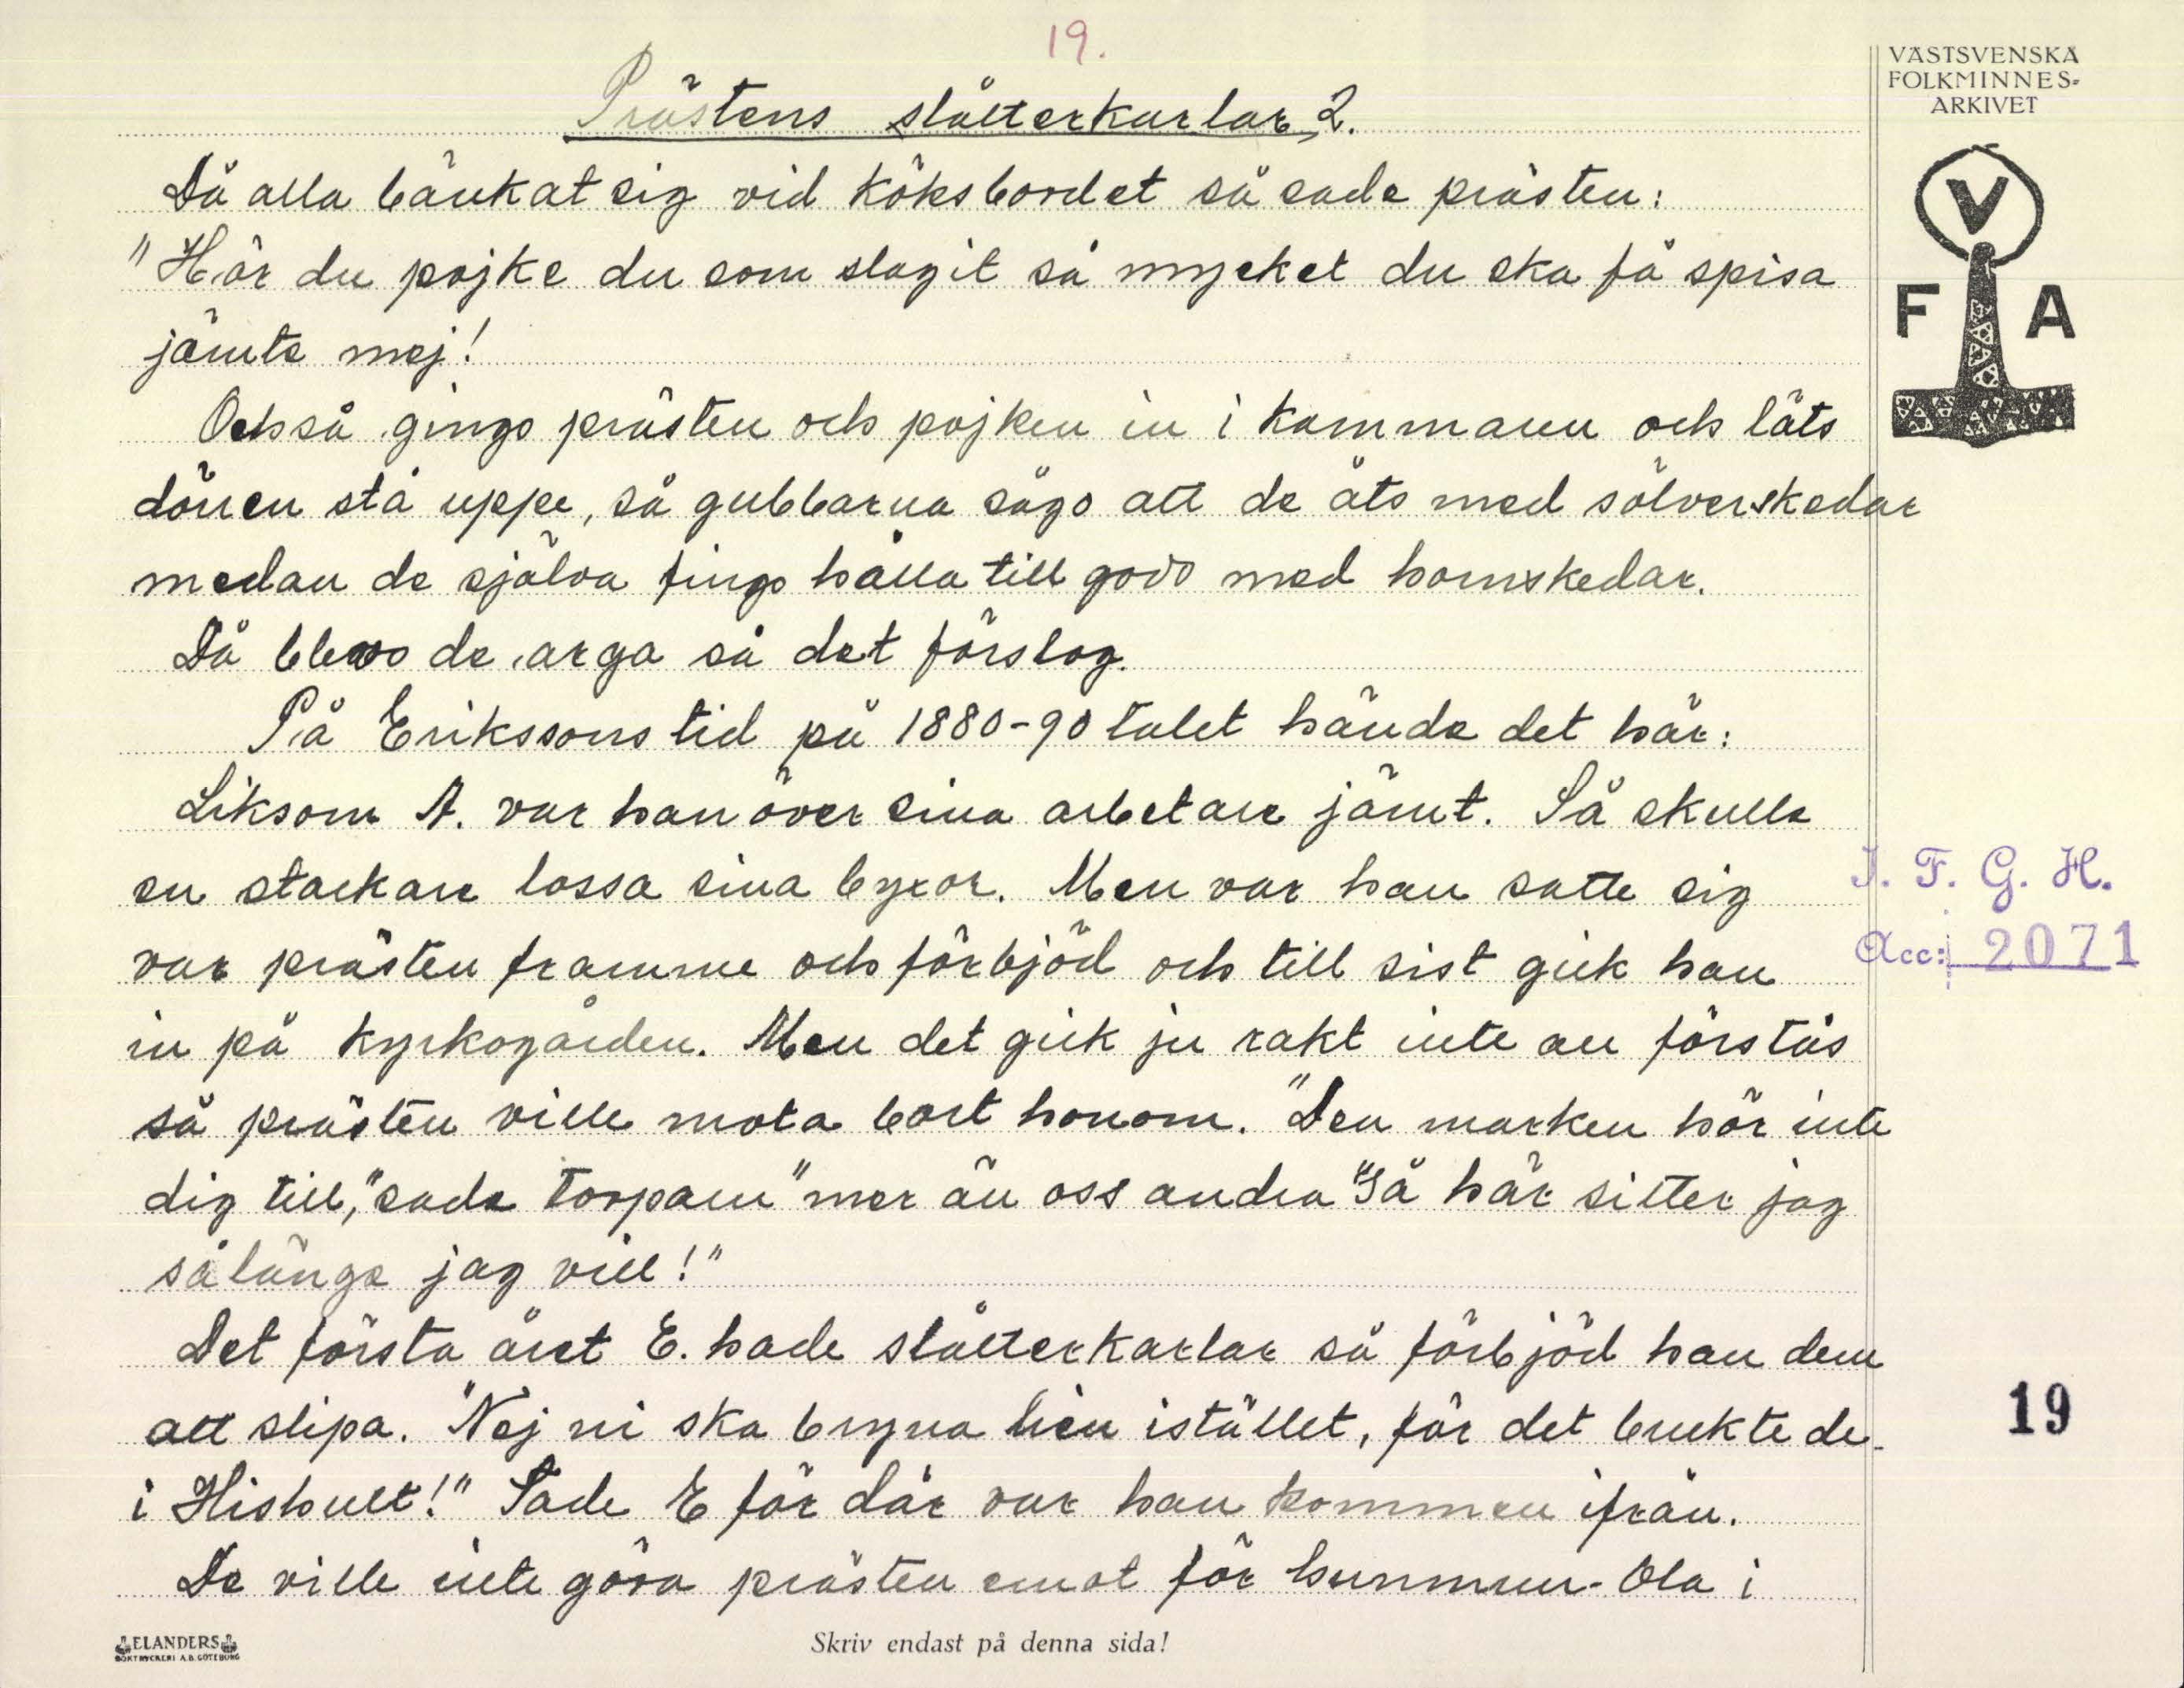 19.
Prästens slåtterkarlar 2.
VÄSTSVENSKA
FOLKMINNES-
ARKIVET
V
F A
Då alla bänkat sig vid köksbordet så sade prästen:
"Hör du pojke du som slagit så mycket du ska få spisa
jämte mej!
Och så gingo prästen och pojken in i kammaren och läts
dörren stå uppe, så gubbarna sågo att de åts med sölverskedar
medan de själva fingo hålla till godo med hornskedar.
Då blevo de arga så det förslog.
På Erikssons tid på 1880-90 talet hände det här:
Liksom A. var han över sina arbetare jämt. Så skulle
en stackare lossa sina byxor. Men var han satte sig
var prästen framme och förbjöd och till sist gick han
in på kyrkogården. Men det gick ju rakt inte an förstås
så prästen ville mota bort honom. "Den marken hör inte
dig till," sade torparn "mer än oss andra "Så här sitter jag
sålänge jag vill!"
I. F. G. H.
Acc: 2071
Det första året E. hade slåtterkarlar så förbjöd han dem
att slipa. "Nej ni ska bryna lien istället, för det brukte de
i Hishult!" Sade E för där var han kommen ifrån.
De ville inte göra prästen emot för
19
ELANDERS
BOKTRYCKERI A.B. GÖTEBORG
Skriv endast på denna sida!